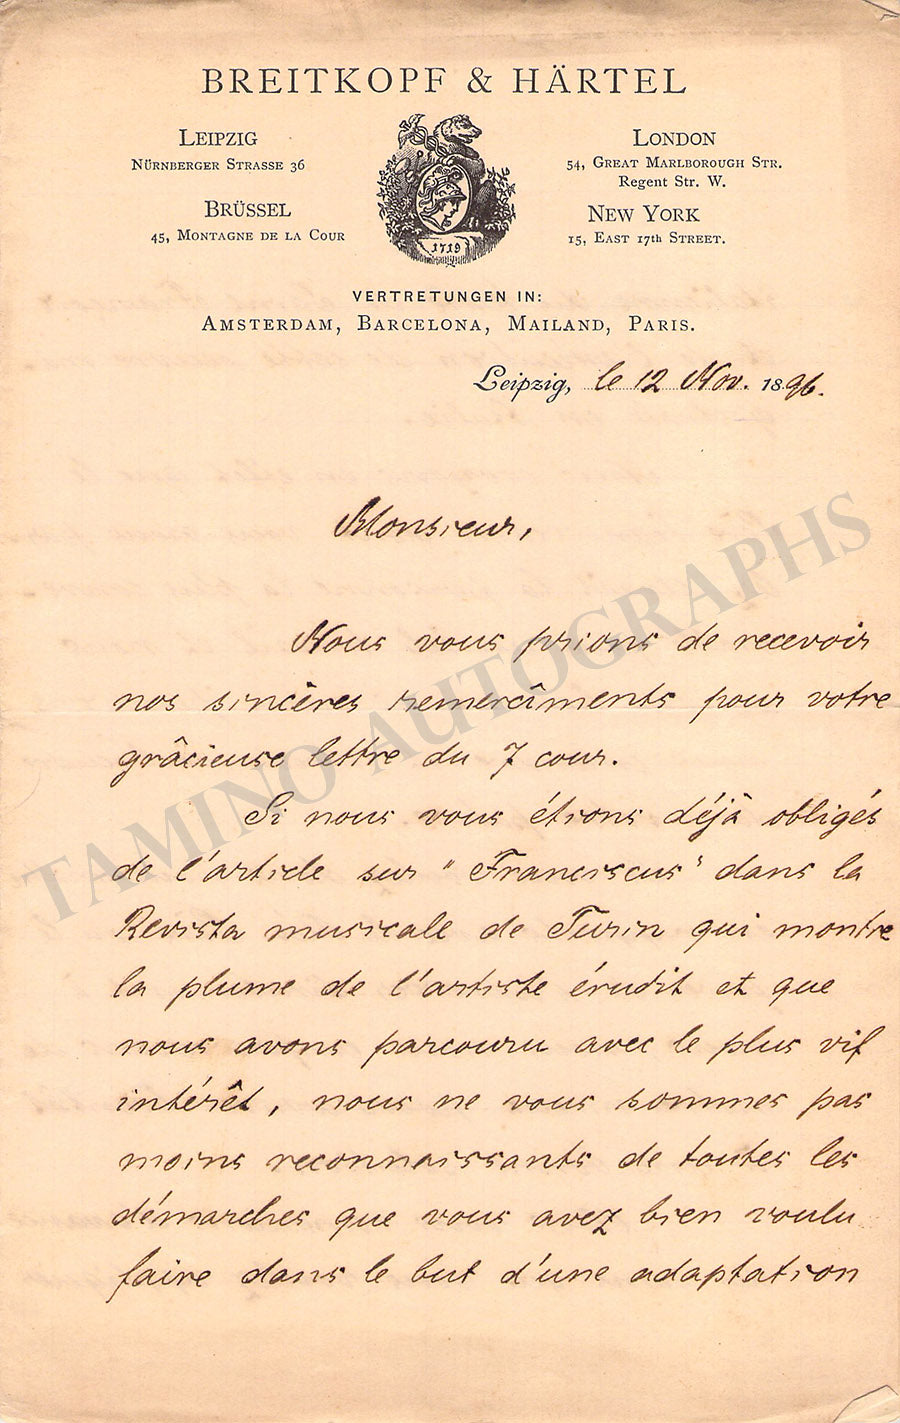 BREITKOPF & HÄRTEL
LEIPZIG
NÜRNBERGER STRASSE 36
BRÜSSEL
45, MONTAGNE DE LA COUR
1719
LONDON
54, GREAT MARLBOROUGH STR.
Regent Str. W.
NEW YORK
15, EAST 17th STREET.
VERTRETUNGEN IN:
AMSTERDAM, BARCELONA, MAILAND, PARIS.
Leipzig, le 12 Nov. 1896.
Monsieur,
Nous vous prions de recevoir
nos sincères remercîments pour votre
grâcieuse lettre du 7 cour.
Si nous vous étions déjà obligés
de l'article sur "Franciscus" dans la
Revista musicale de Turin qui montre
la plume de l'artiste érudit et que
nous avons parcouru avec le plus vif
intérêt, nous ne vous sommes pas
moins reconnaissants de toutes les
démarches que vous avez bien voulu
faire dans le but d'une adaptation
TAMINO AUTOGRAPHS